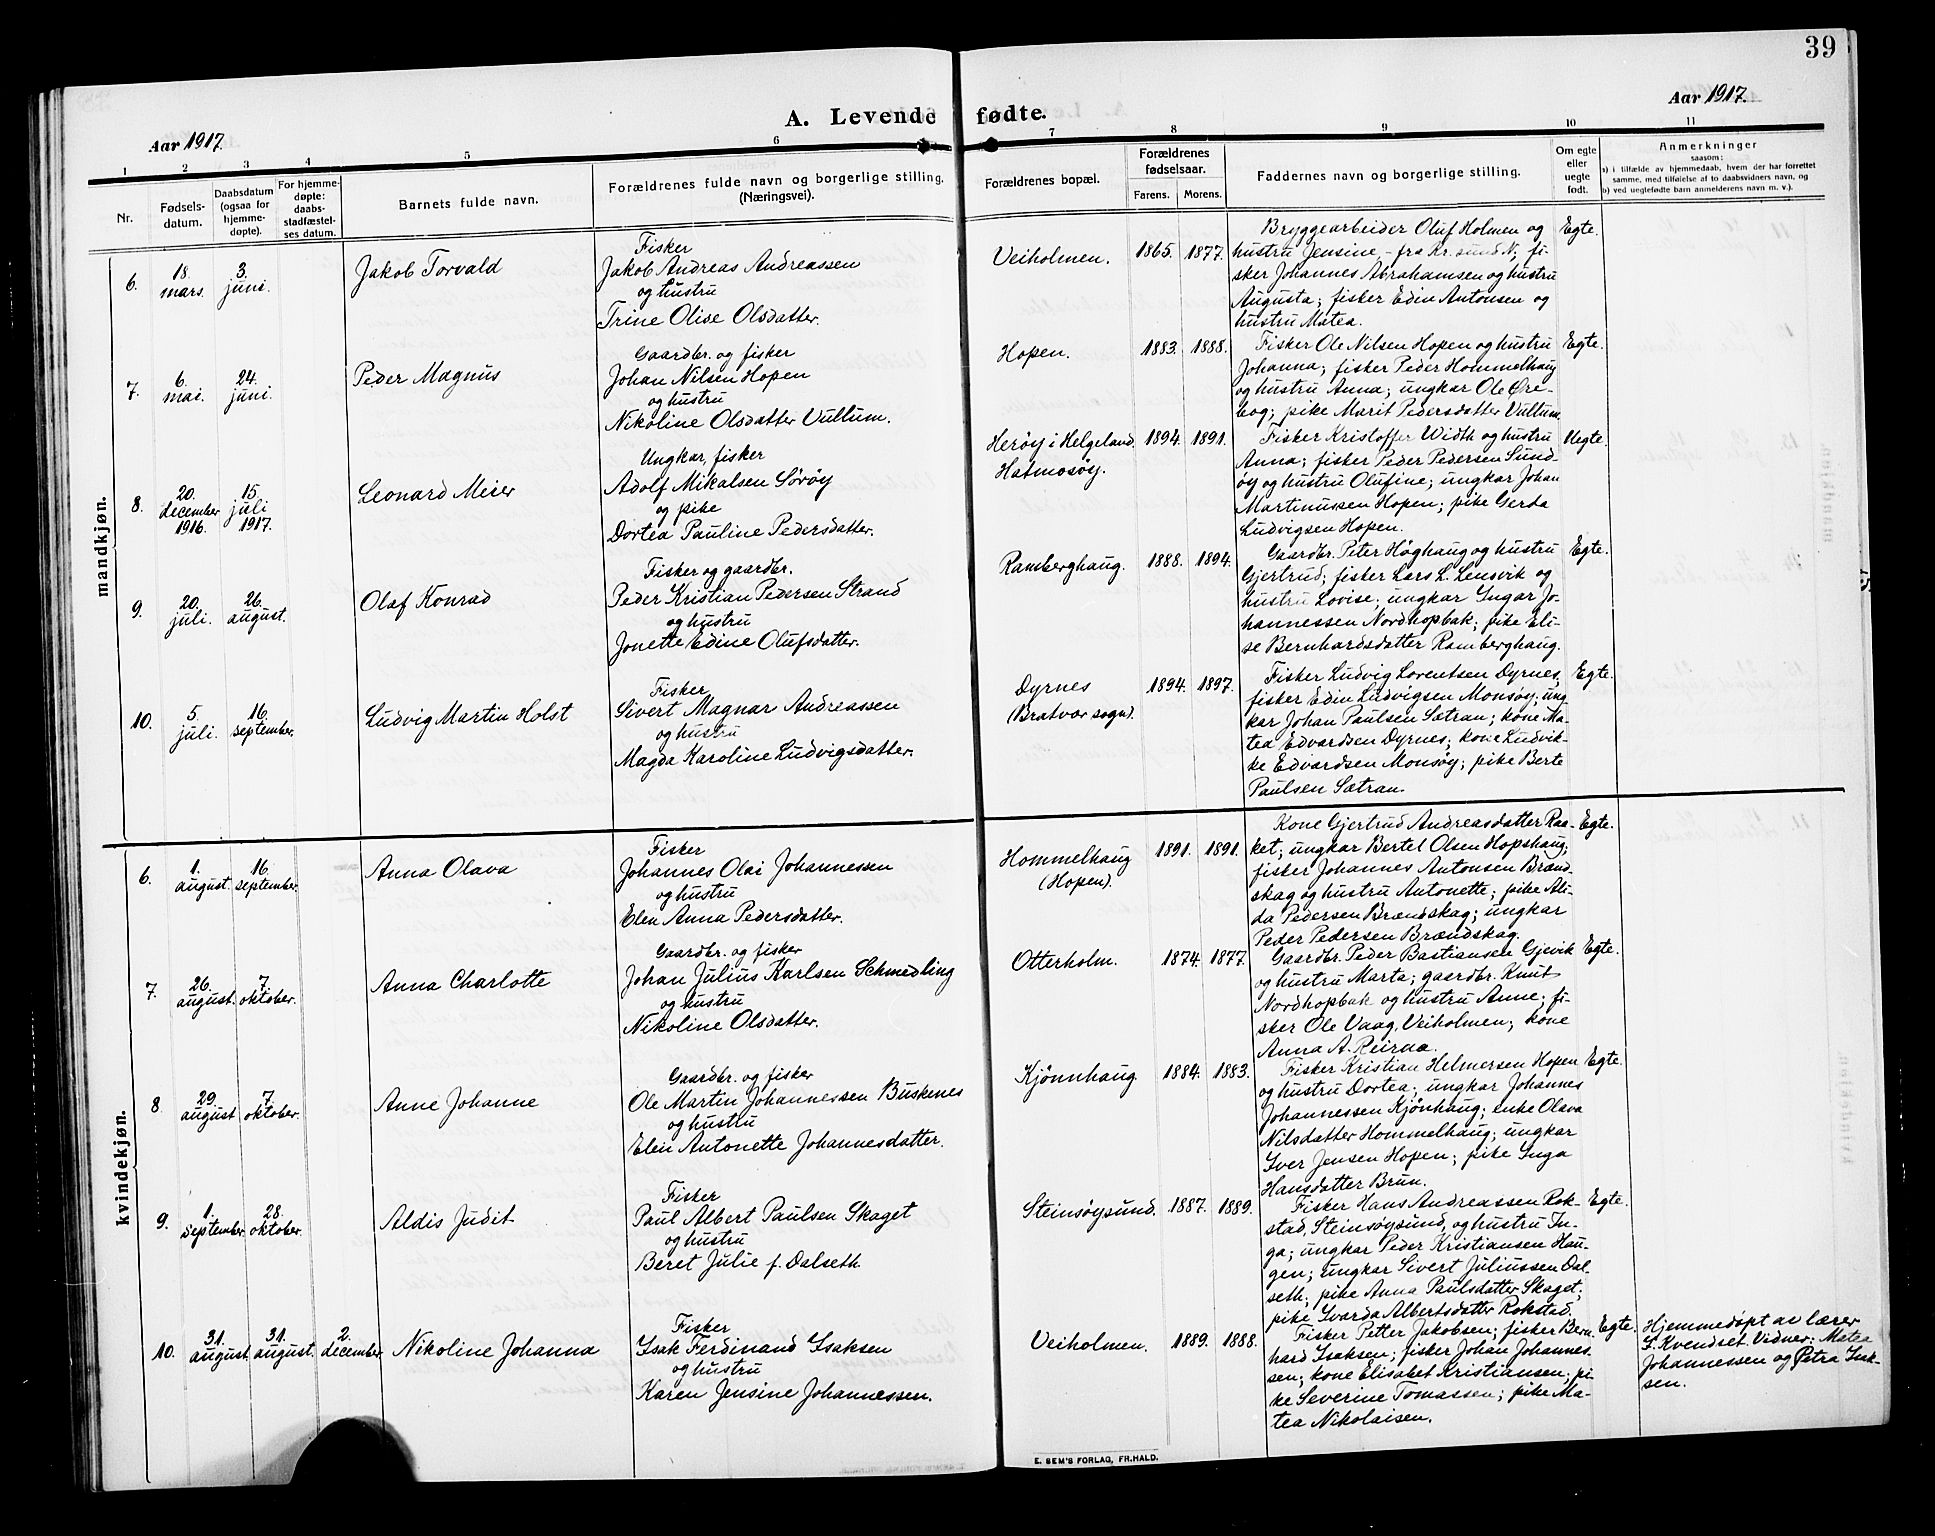 39
A. Levende fødte.
Aar 1917.
Aar 1917.
1
2
3
4
5
6
7
8
9
10
11
Nr.
Fødsels-
datum.
Daabsdatum
(ogsaa for
hjemme-
døpte).
For hjemme-
døpte:
daabs-
stadfæstel-
ses datum.
Barnets fulde navn.
Forældrenes fulde navn og borgerlige stilling.
(Næringsvei).
Forældrenes bopæl.
Forældrenes
fødselsaar.
Farens.
Morens.
Faddernes navn og borgerlige stilling.
Om egte
eller
uegte
født.
Anmerkninger
saasom:
a) i tilfælde av hjemmedaab, hvem der har forrettet
samme, med tilføielse af to daabsvidners navn, og
b) ved uegtefødte barn anmelderens navn m. v.).
mandkjøn.
6.
18.
mars.
3.
juni.
Jakob Torvald
Fisker
Jakob Andreas Andreassen
og hustru
Trine Olise Olsdatter.
Veiholmen.
1865.
1877.
Bryggearbeider Oluf Holmen og
hustru Jensine, - fra Kr. sund N; fi-
sker Johannes Abrahamsen og hustru
Augusta; fisker Edin Antonsen og
hustru Matea.
Egte.
7.
6.
mai.
24.
juni.
Peder Magnus
Gaardbr. og fisker
Johan Nilsen Hopen
og hustru
Nikoline Olsdatter Vullum.
Hopen.
1883.
1888.
Fisker Ole Nilsen Hopen og hustru
Johanna; fisker Peder Hommelhaug
og hustru Anna; ungkar Ole Øre-
bog; pike Marit Pedersdatter Vullum.
Egte.
8.
20.
december
1916.
15.
juli
1917.
Leonard Meier
Ungkar, fisker
Adolf Mikalsen Sørøy
og pike
Dortea Pauline Pedersdatter.
Herøy i Helgeland.
Hatmosøy.
1894.
1891.
Fisker Kristoffer Width og hustru
Anna; fisker Peder Pedersen Sund-
øy og hustru Olufine; ungkar Johan
Martinussen Hopen; pike Gerda
Ludvigsen Hopen.
Uegte.
9.
20.
juli.
26.
august.
Olaf Konrad
Fisker og gaardbr.
Peder Kristian Pedersen Strand
og hustru
Jonette Edine Olufsdatter.
Ramberghaug.
1888.
1894.
Gaardbr. Peter Høghaug og hustru
Gjertrud; fisker Lars L. Lensvik og
hustru Lovise; ungkar Ingar Jo-
hannessen Nordhopbak; pike Eli-
se Bernhardsdatter Ramberghaug.
Egte.
10.
5.
juli.
16.
september.
Ludvig Martin Holst
Fisker
Sivert Magnar Andreassen
og hustru
Magda Karoline Ludvigsdatter.
Dyrnes
(Bratvær sogn).
1894.
1897.
Fisker Ludvig Lorentsen Dyrnes,
fisker Edin Ludvigsen Monsøy; ung-
kar Johan Paulsen Sætran; kone Ma-
tea Edvardsen Dyrnes; kone Ludvik-
ke Edvardsen Monsøy; pike Berte
Paulsen Sætran.
Egte.
kvindekjøn.
6.
1.
august.
16.
september.
Anna Olava
Fisker
Johannes Olai Johannessen
og hustru
Elen Anna Pedersdatter.
Hommelhaug
(Hopen).
1891.
1891.
Kone Gjertrud Andreasdatter Raa-
ket; ungkar Bertel Olsen Hopshaug;
fisker Johannes Antonsen Brænd-
skag og hustru Antonette; pike Ali-
da Pedersen Brændskag; ungkar
Peder Pedersen Brændskag.
Egte.
7.
26.
august.
7.
oktober.
Anna Charlotte
Gaardbr. og fisker
Johan Julius Karlsen Schmedling
og hustru
Nikoline Olsdatter.
Otterholm.
1874.
1877.
Gaardbr. Peder Bastiansen Gjevik
og hustru Marta; gaardbr. Knut
Nordhopbak og hustru Anne; fi-
sker Ole Vaag, Veiholmen; kone
Anna A. Reirna.
Egte.
8.
29.
august
7.
oktober.
Anne Johanne
Gaardbr. og fisker
Ole Martin Johannessen Buskenes
og hustru
Elen Antonette Johannesdatter.
Kjønnhaug.
1884.
1883.
Fisker Kristian Helmersen Hopen
og hustru Dortea; ungkar Johannes
Johannessen Kjønhaug; enke Olava
Nilsdatter Hommelhaug; ungkar
Iver Jensen Hopen; pike Inga
Hansdatter Brun.
Egte.
9.
1.
september.
28.
oktober.
Aldis Judit
Fisker
Paul Albert Paulsen Skaget
og hustru
Beret Julie f. Dalseth
Steinsøysund.
1887.
1889.
Fisker Hans Andreassen Rok-
stad, Steinsøysund, og hustru In-
ga; ungkar Peder Kristiansen Hau-
gen; ungkar Sivert Juliussen Dal-
seth; pike Anna Paulsdatter Skaget;
pike Svarda Albertsdatter Rokstad.
Egte.
10.
31.
august
31.
august.
2.
december
Nikoline Johanna
Fisker
Isak Ferdinand Isaksen
og hustru
Karen Jensine Johannessen.
Veiholmen.
1889.
1888.
Fisker Petter Jakobsen; fisker Bern-
hard Isaksen; fisker Johan Johannes-
sen; kone Elisabet Kristiansen; pi-
ke Severine Tomassen; pike Ma-
tea Nikolaisen.
Egte.
Hjemmedøpt av lærer
Kvendset. Vidner: Matea
Johannessen og Petra Isak-
sen.
E. SEM'S FORLAG, FR.HALD.